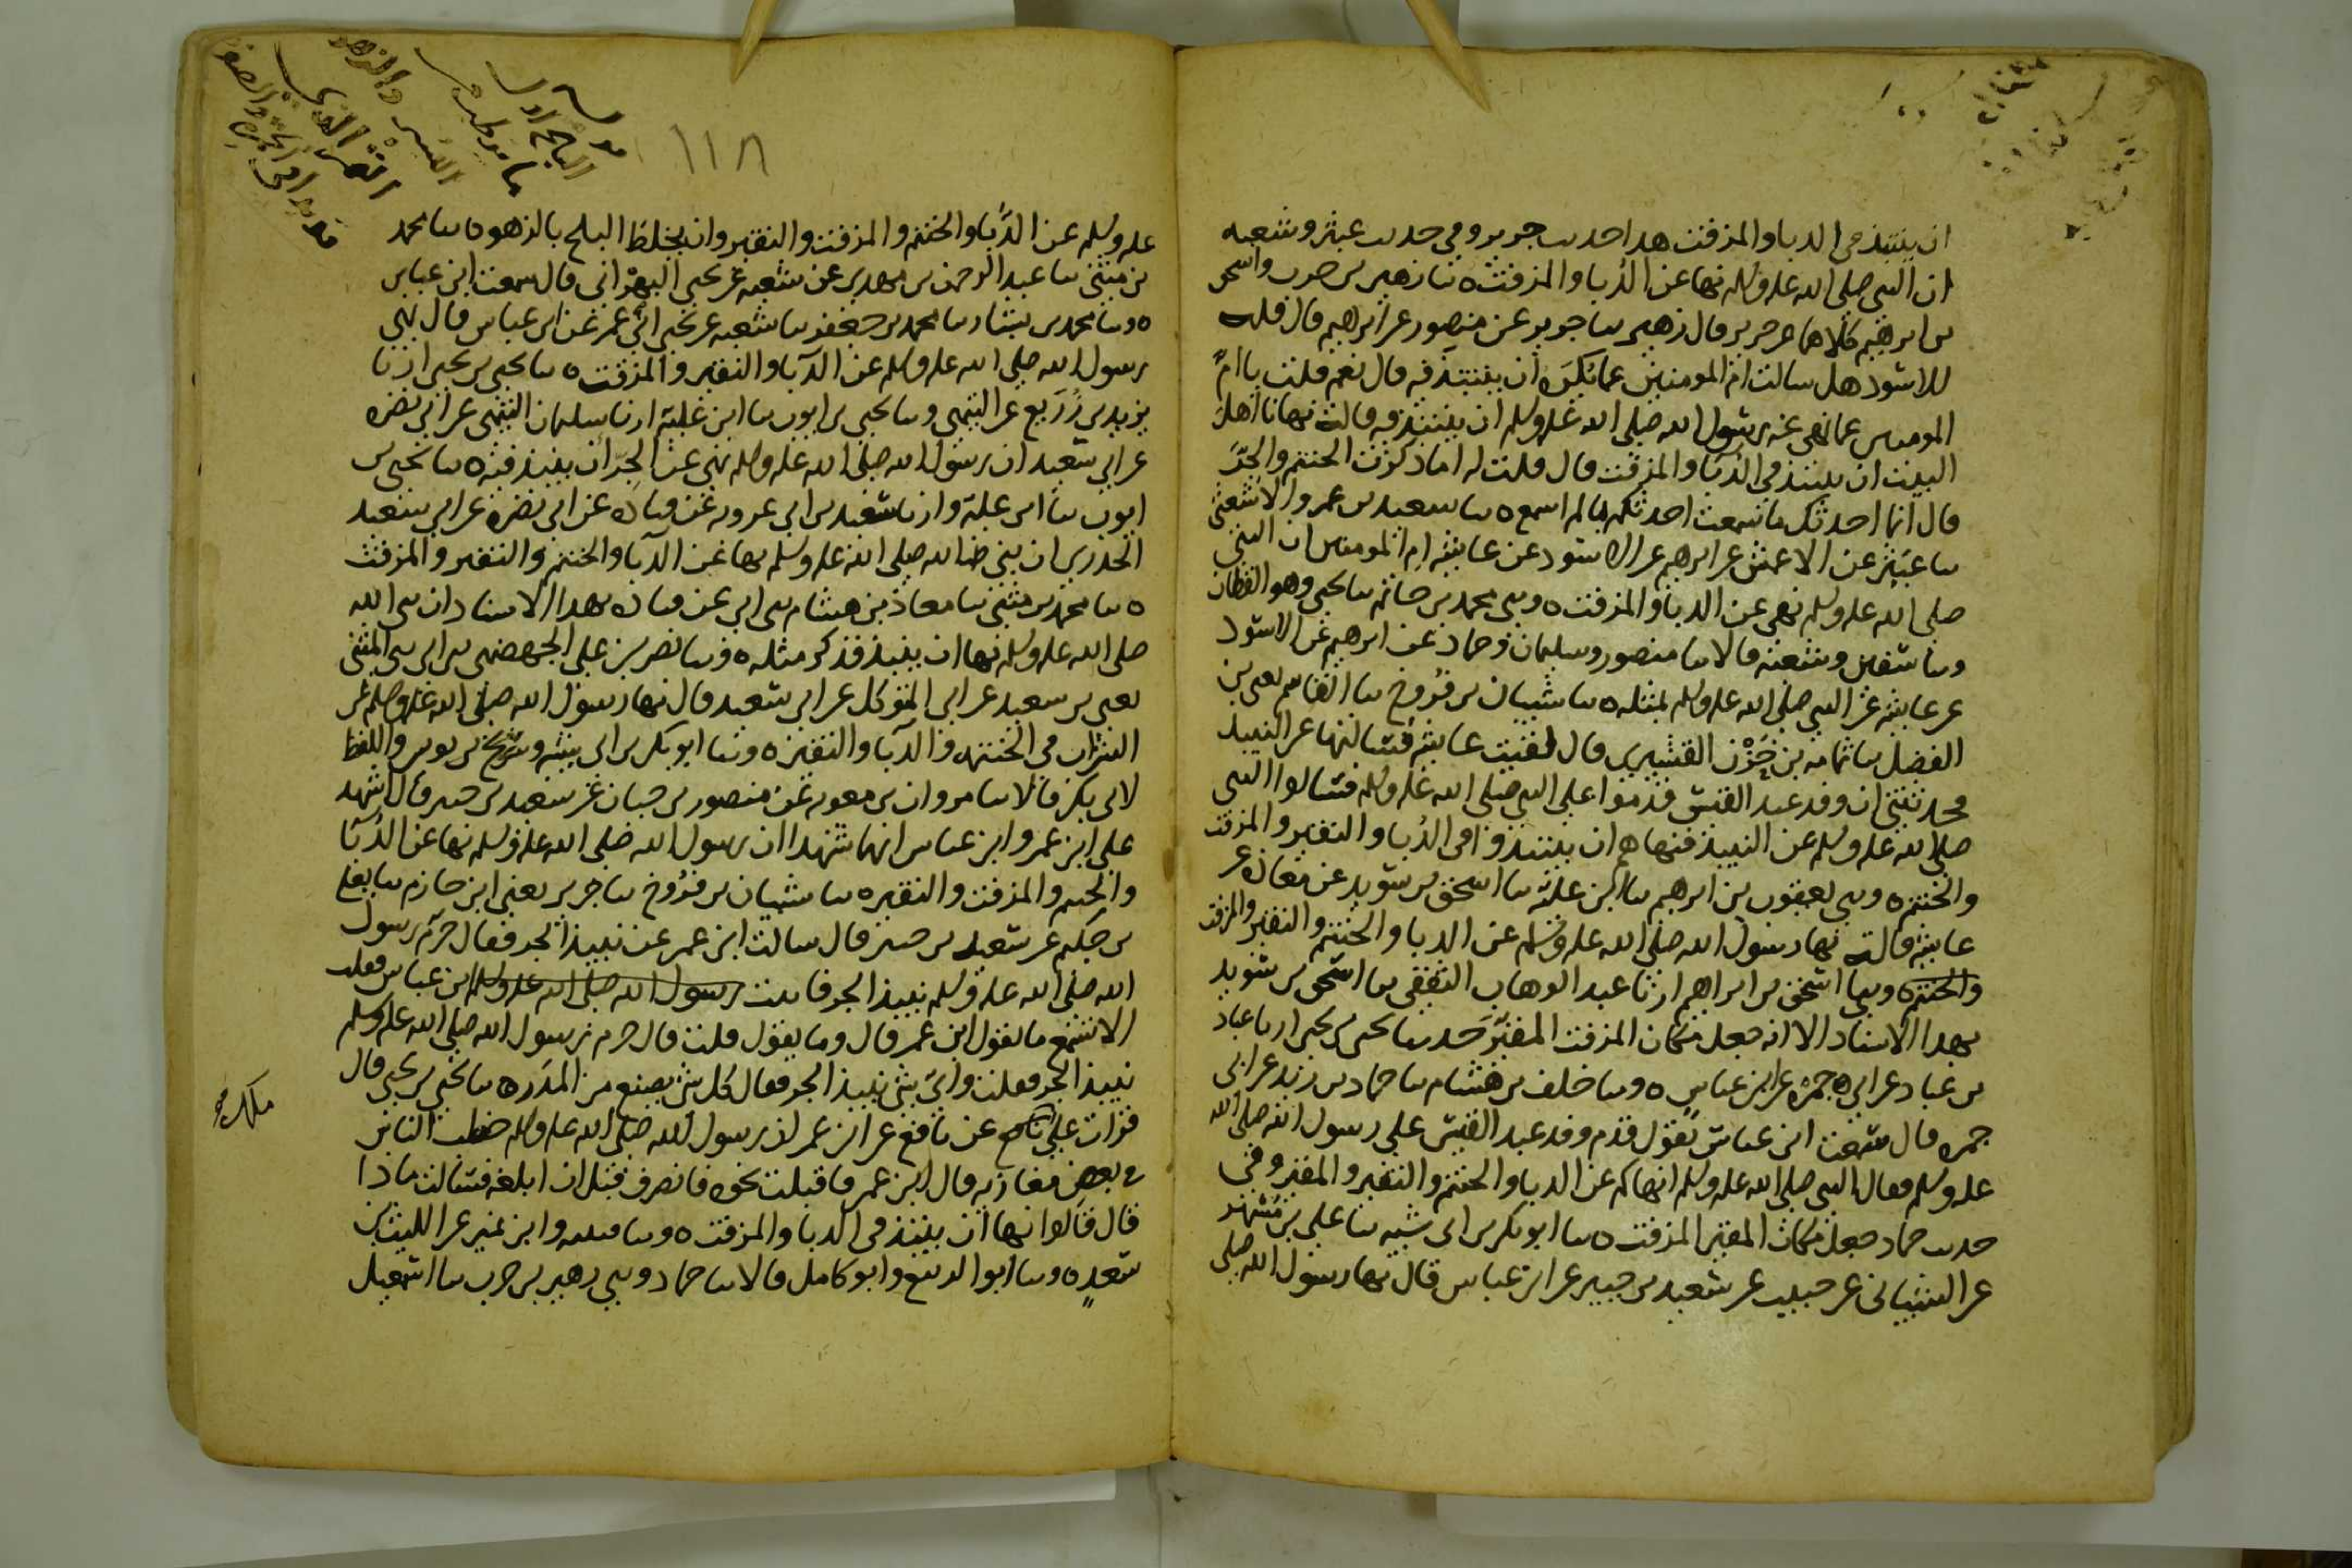 ان ينتبذ في الدبا والمزفت هذا حديث جرير وفي حديث عبثر وشعبه
ان النبي صلى الله عليه وسلم نها عن الدبا والمزفت ٥ نا زهير بن حرب واسحق
بن ابرهيم كلاهما عن جرير قال زهير نا جرير عن منصور عن ابرهيم قال قلت
للاسود هل سالت ام المومنين عما يكره ان ينتبذ فيه قال نعم قلت يا ام
المومنين عما نهى عنه رسول الله صلى الله عليه وسلم ان ينتبذ فيه قالت نهانا اهل
البيت ان ننتبذ في الدبا والمزفت قال قلت له اما ذكرت الحنتم والجر
قال انما احدثك ما سمعت احدثكم ما لم اسمع ٥ نا سعيد بن عمرو الاشعثي
نا عبثر عن الاعمش عن ابرهيم عن الاسود عن عايشه ام المومنين ان النبي
صلى الله عليه وسلم نهى عن الدبا والمزفت ٥ وني محمد بن حاتم نا يحيى وهو القطان
ونا سفين وشعبه قالا نا منصور وسليمان وحماد عن ابرهيم عن الاسود
عن عايشه عن النبي صلى الله عليه وسلم بمثله ٥ نا شيبان بن فروخ نا القاسم يعني بن
الفضل نا ثمامه بن حزن القشيري قال لقيت عايشه فسالتها عن النبيذ
فحدثتني ان وفد عبد القيس قدموا على النبي صلى الله عليه وسلم فسالوا النبي
صلى الله عليه وسلم عن النبيذ فنهاهم ان ينتبذوا في الدبا والنقير والمزفت
والحنتم ٥ وني يعقوب بن ابرهيم نا ابن علية نا اسحق بن سويد عن معاذه عن
عايشه قالت نها رسول الله صلى الله عليه وسلم عن الدبا والحنتم والنقير والمزفت
والحنتم ٥ ونا اسحق بن ابراهيم ارنا عبد الوهاب الثقفي نا اسحق بن سويد
بهذا الاسناد الا انه جعل مكان المزفت المقير حدثنا يحيى بن يحيى ارنا عباد
بن عباد عن ابي جمره عن ابن عباس ٥ ونا خلف بن هشام نا حماد بن زيد عن ابي
جمره قال سمعت ابن عباس يقول قدم وفد عبد القيس على رسول الله صلى الله
عليه وسلم فقال النبي صلى الله عليه وسلم انهاكم عن الدبا والحنتم والنقير والمقير وفي
حديث حماد جعل مكان المقير المزفت ٥ نا ابو بكر بن ابي شيبه نا علي بن مسهر
عن الشيباني عن حبيب عن سعيد بن جبير عن ابن عباس قال نها رسول الله صلى
١١٨
عليه وسلم عن الدبا والحنتم والمزفت والنقير وان يخلط البلح بالزهو ٥ نا محمد
بن مثنى نا عبد الرحمن بن مهدي عن شعبه عن يحيى البهراني قال سمعت ابن عباس
٥ ونا محمد بن بشار نا محمد بن جعفر نا شعبه عن يحيى ابي عمر عن ابن عباس قال نهى
رسول الله صلى الله عليه وسلم عن الدبا والنقير والمزفت ٥ نا يحيى بن يحيى ارنا
يزيد بن زريع عن التيمي ونا يحيى بن ايوب نا ابن علية ارنا سليمان التيمي عن ابي نضره
عن ابي سعيد ان رسول الله صلى الله عليه وسلم نهى عن الجر ان ينبذ فيه ٥ نا يحيى بن
ايوب نا ابن علية وارنا سعيد بن ابي عروبه عن قتاده عن ابي نضره عن ابي سعيد
الخدري ان نبي الله صلى الله عليه وسلم نها عن الدبا والحنتم والنقير والمزفت
٥ نا محمد بن مثنى نا معاذ بن هشام ني ابي عن قتاده بهذا الاسناد ان نبي الله
صلى الله عليه وسلم نها ان ينبذ فذكر مثله ٥ ونا نصر بن علي الجهضمي ني ابي ني المثنى
يعني بن سعيد عن ابي المتوكل عن ابي سعيد قال نها رسول الله صلى الله عليه وسلم عن
الشراب في الحنتمه والدبا والنقير ٥ ونا ابو بكر بن ابي شيبه وسريج بن يونس واللفظ
لابي بكر قالا نا مروان بن معويه عن منصور بن حيان عن سعيد بن جبير قال اشهد
على ابن عمر وابن عباس انهما شهدا ان رسول الله صلى الله عليه وسلم نها عن الدبا
والحنتم والمزفت والنقير ٥ نا شيبان بن فروخ نا جرير يعني ابن حازم نا يعلى
بن حكيم عن سعيد بن جبير قال سالت ابن عمر عن نبيذ الجر فقال حرم رسول
الله صلى الله عليه وسلم نبيذ الجر فاتيت رسول الله صلى الله عليه وسلم ابن عباس فقلت
الا تسمع ما يقول ابن عمر قال وما يقول قلت قال حرم رسول الله صلى الله عليه وسلم
نبيذ الجر فقلت واي شي نبيذ الجر فقال كل شي يصنع من المدر ٥ نا يحيى بن يحيى قال
قرات على عن نافع عن ابن عمر ان رسول الله صلى الله عليه وسلم خطب الناس
في بعض مغازيه قال ابن عمر فاقبلت نحوه فانصرف قبل ان ابلغه فسالت ماذا
قال قالوا نها ان ينتبذ في الدبا والمزفت ٥ ونا قتيبه وابن نمير عن الليث بن
سعد ٥ ونا ابو الربيع وابو كامل قالا نا حماد وني زهير بن حرب نا اسمعيل
ملك صح